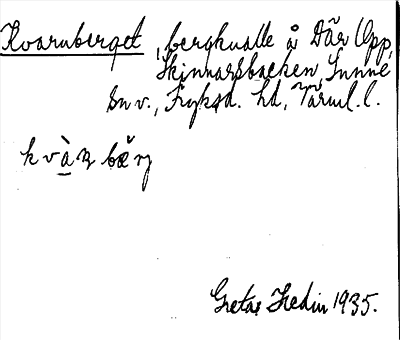 Kvarnberget, bergknalle å Där Opp,
Skinnarsbacken, Sunne
sn v., Fryksd. hd, Värml. l.
kvàṇ bærj
Greta Hedin 1935.